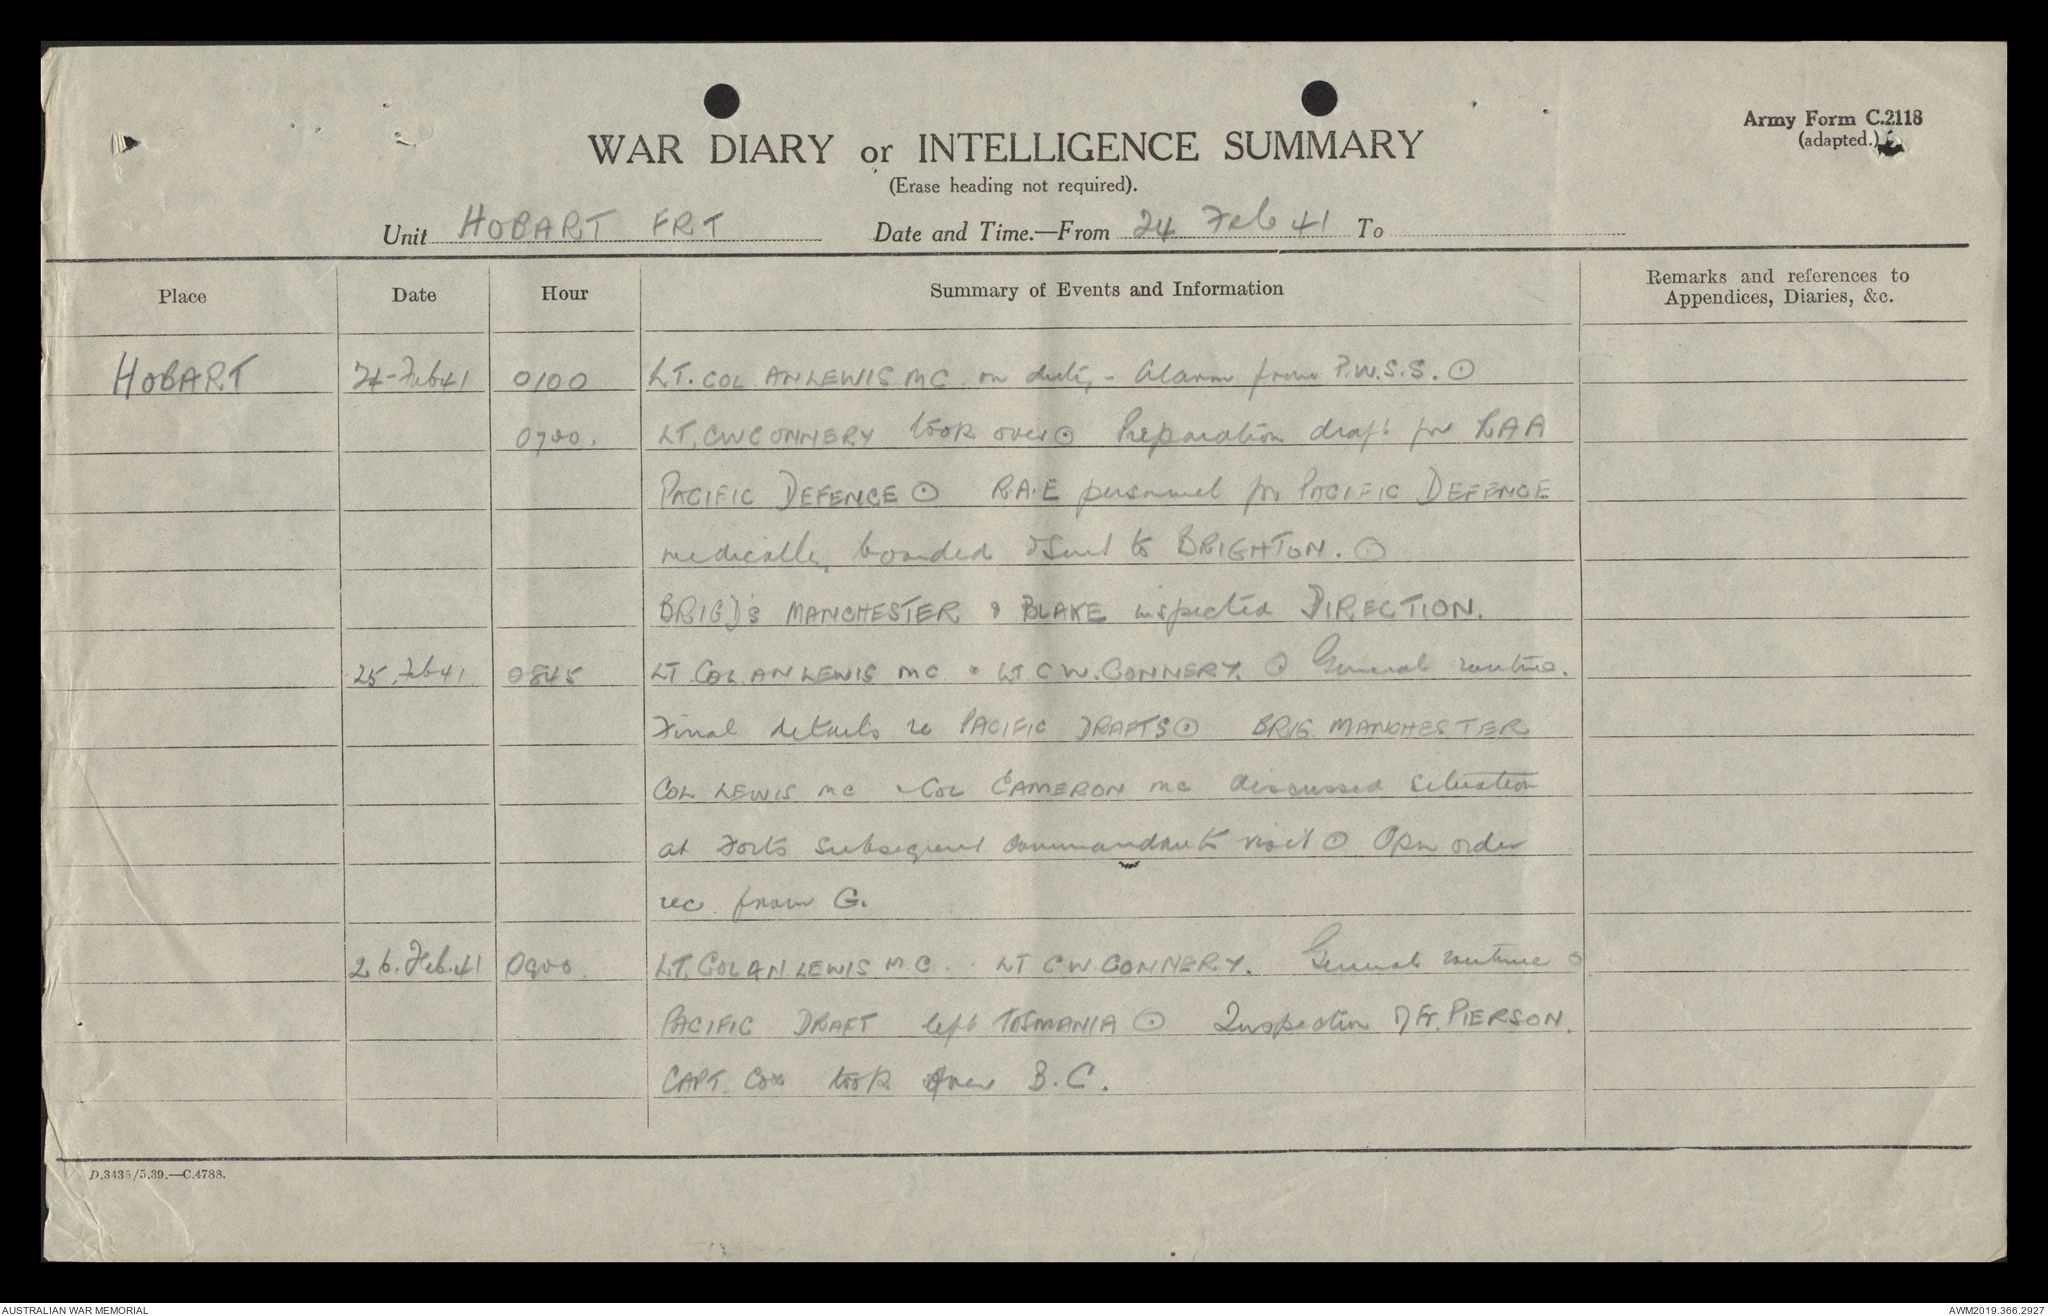 Army Form C.2118
(adapted.)
WAR DIARY or INTELLIGENCE SUMMARY
(Erase heading not required).
Unit HOBART FRT Date and Time.—From 24 Feb 41 To
Place Date Hour Summary of Events and Information Remarks and references to Appendices, Diaries, &c.
HOBART 24-Feb 41 0100 LT. COL AN LEWIS MC on duty - Alarm from P.W.S.S. ⊙
0700. LT. CW CONNERY took over ⊙ Preparation draft for RAA
PACIFIC DEFENCE ⊙ R.A.E personnel for PACIFIC DEFENCE
medically boarded & sent to BRIGHTON. ⊙
BRIGD's MANCHESTER & BLAKE inspected DIRECTION.
25. Feb 41 0845 LT COL. AN LEWIS MC & LT. C W. CONNERY. ⊙ General routine.
Final details re PACIFIC DRAFTS ⊙ BRIG. MANCHESTER
COL LEWIS MC & COL CAMERON MC discussed situation
at Forts subsequent Commandants visit ⊙ Opn order
rec from G.
26. Feb. 41 0900. LT. COL AN. LEWIS M.C. LT CW. CONNERY. General routine ⊙
PACIFIC DRAFT left TASMANIA ⊙ Inspection of Ft. PIERSON.
CAPT. COX took over B.C.
D.3435/5.39.—C.4788.
AUSTRALIAN WAR MEMORIAL AWM2019.366.2927